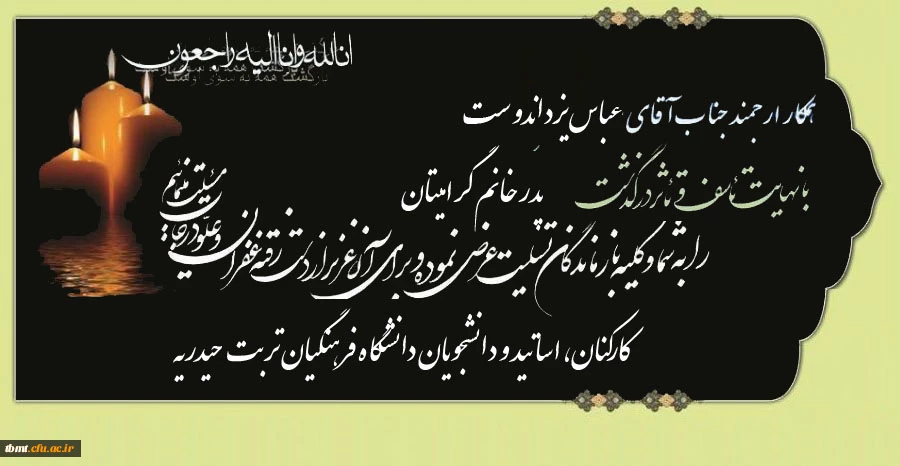 انا لله و انا الیه راجعون
بازگشت همه به سوی اوست
همکار ارجمند جناب آقای عباس یزداندوست
با نهایت تأسف و تأثر درگذشت پدر خانم گرامیتان
را به شما و کلیه بازماندگان تسلیت عرض نموده و برای آن عزیز از دست رفته غفران و علو درجات
مسئلت می‌نمائیم
کارکنان، اساتید و دانشجویان دانشگاه فرهنگیان تربت حیدریه
tbmt.cfu.ac.ir